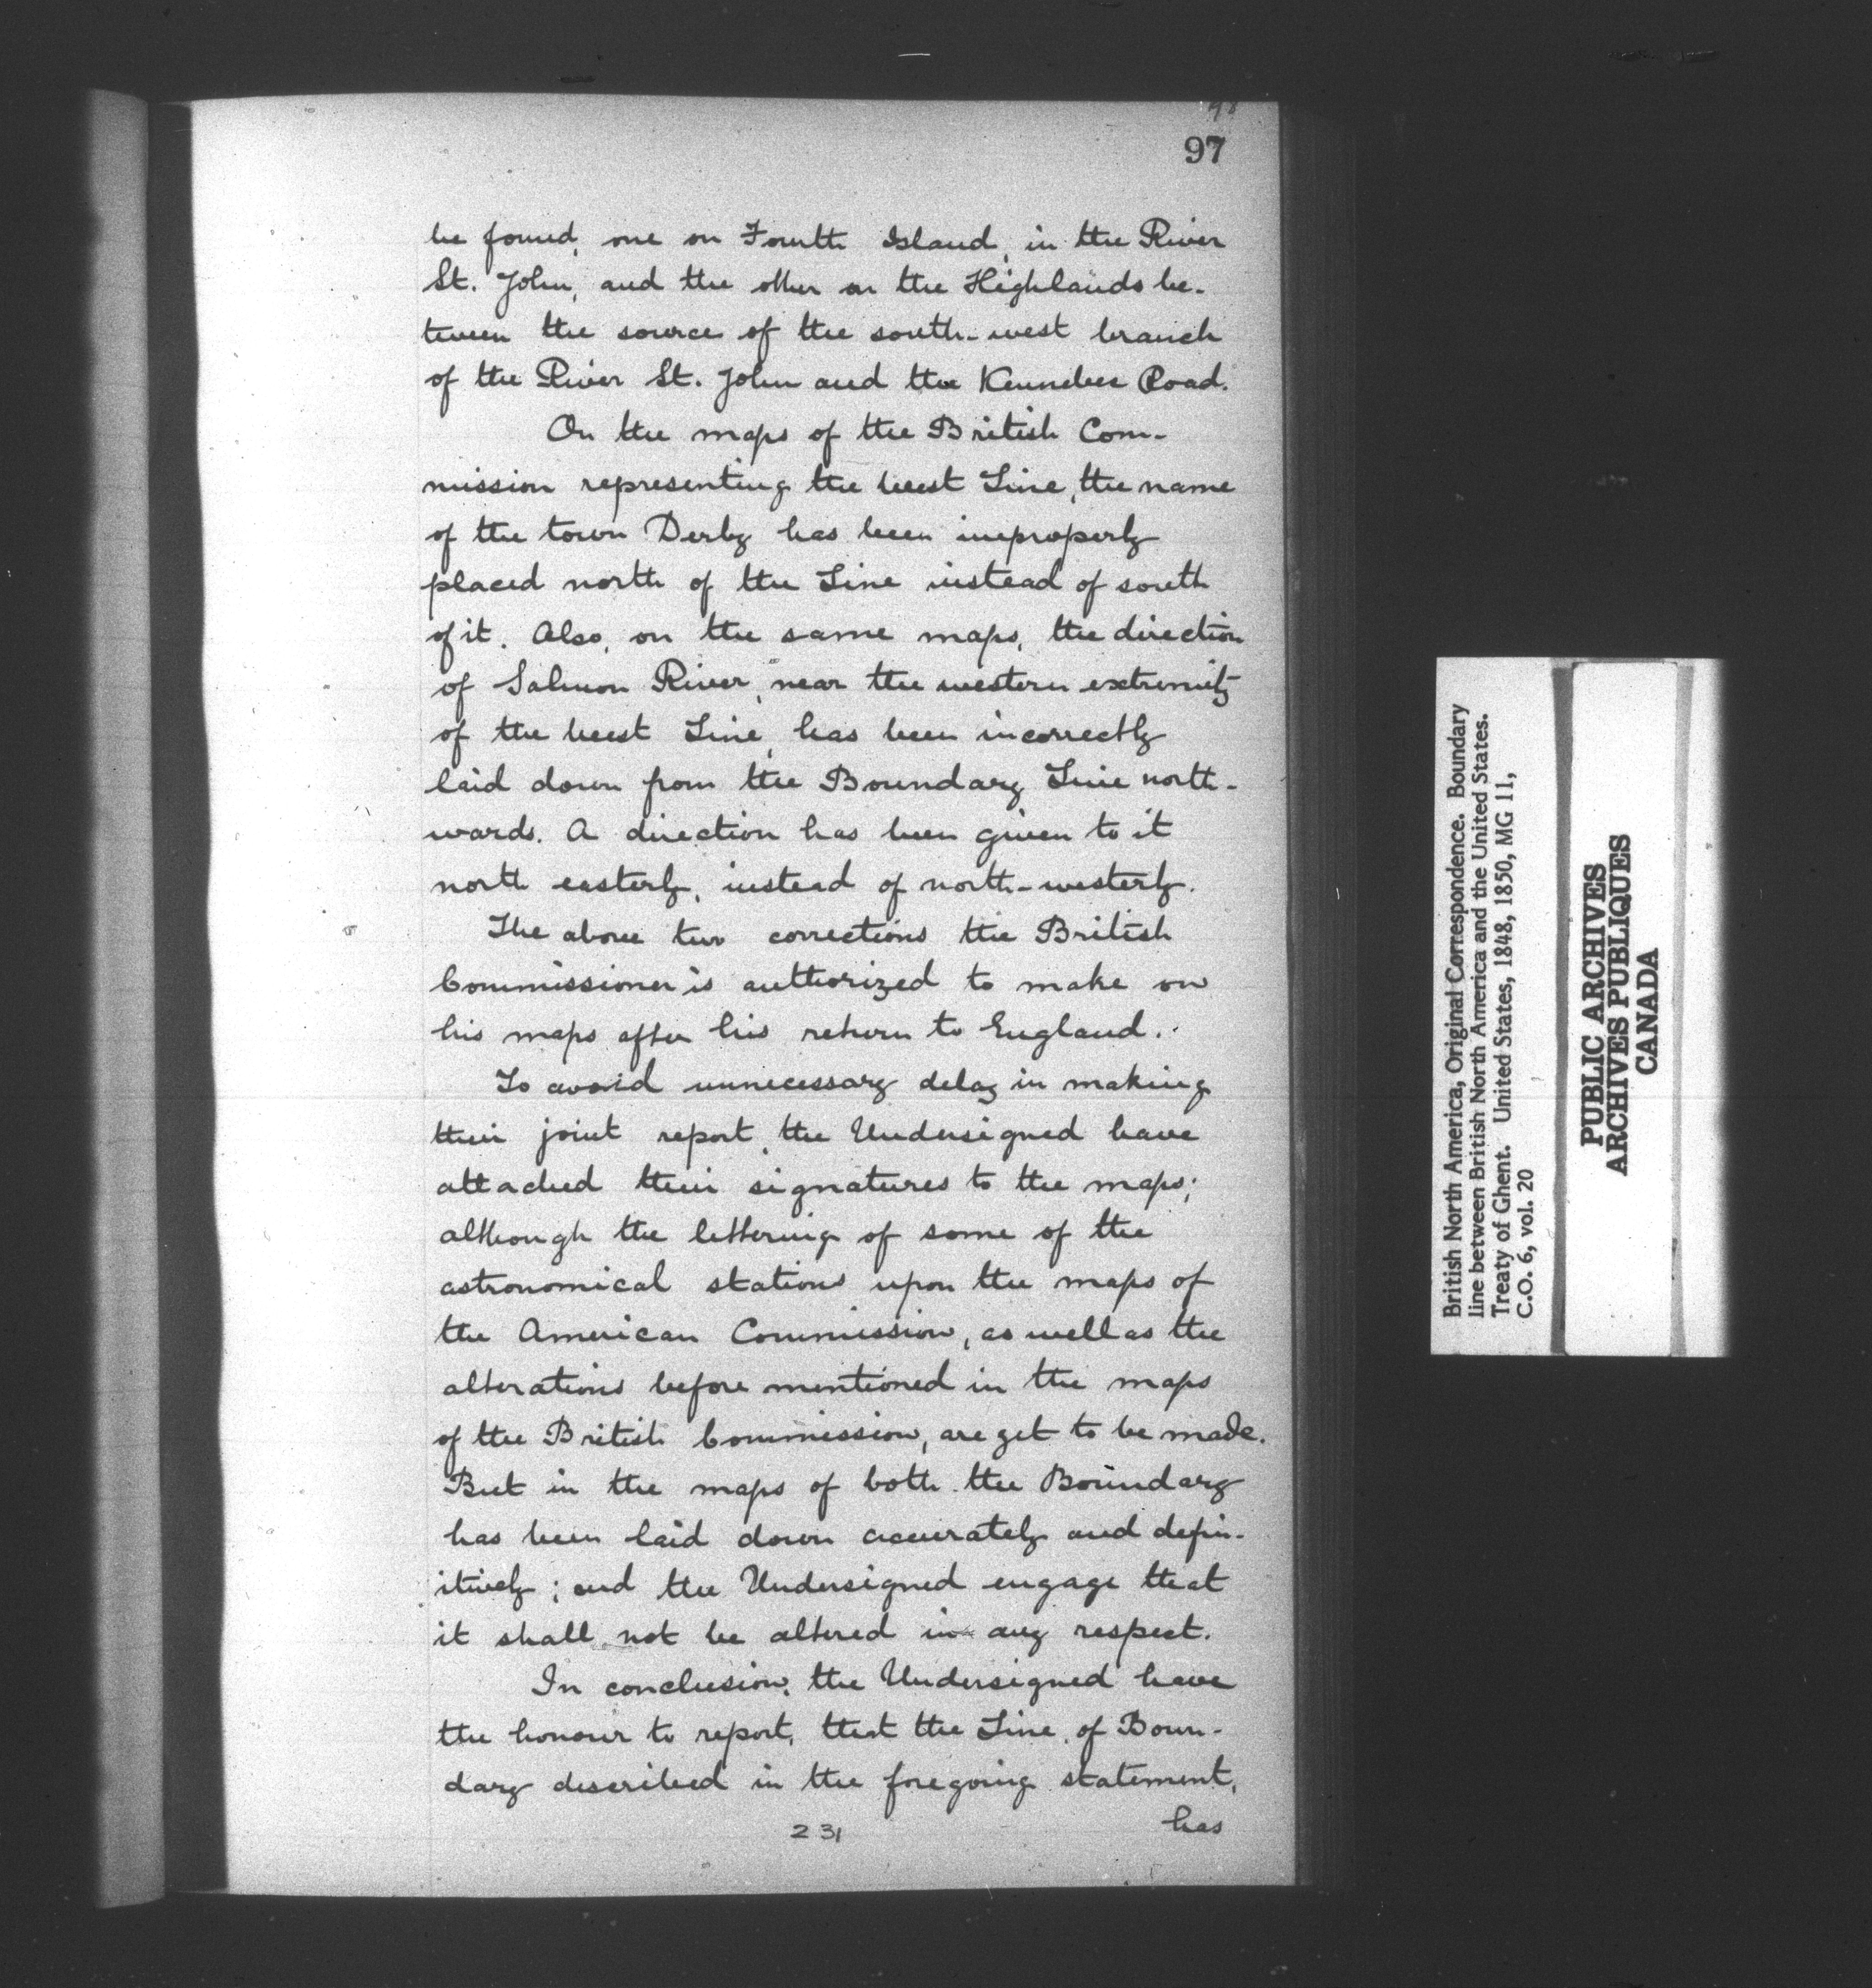 97
be found, one on Fourth Island, in the River
St. John, and the other on the Highlands be-
tween the source of the south-west branch
of the River St. John and the Kennebec Road.
On the maps of the British Com-
mission representing the West Line, the name
of the town Derby has been improperly
placed north of the Line instead of south
of it. Also, on the same maps, the direction
of Salmon River, near the western extremity
of the West Line, has been incorrectly
laid down from the Boundary Line north-
wards. A direction has been given to it
north easterly, instead of north-westerly.
The above two corrections the British
Commissioner is authorized to make on
his maps after his return to England.
To avoid unnecessary delay in making
their joint report, the Undersigned have
attached their signatures to the maps;
although the lettering of some of the
astronomical stations upon the maps of
the American Commission, as well as the
alterations before mentioned in the maps
of the British Commission, are yet to be made.
But in the maps of both the Boundary
has been laid down accurately and defin-
itively; and the Undersigned engage that
it shall not be altered in any respect.
In conclusion, the Undersigned have
the honour to report, that the Line of Boun-
dary described in the foregoing statement,
has
231
British North America, Original Correspondence. Boundary
line between British North America and the United States.
Treaty of Ghent. United States, 1848, 1850, MG 11,
C.O. 6, vol. 20
PUBLIC ARCHIVES
ARCHIVES PUBLIQUES
CANADA